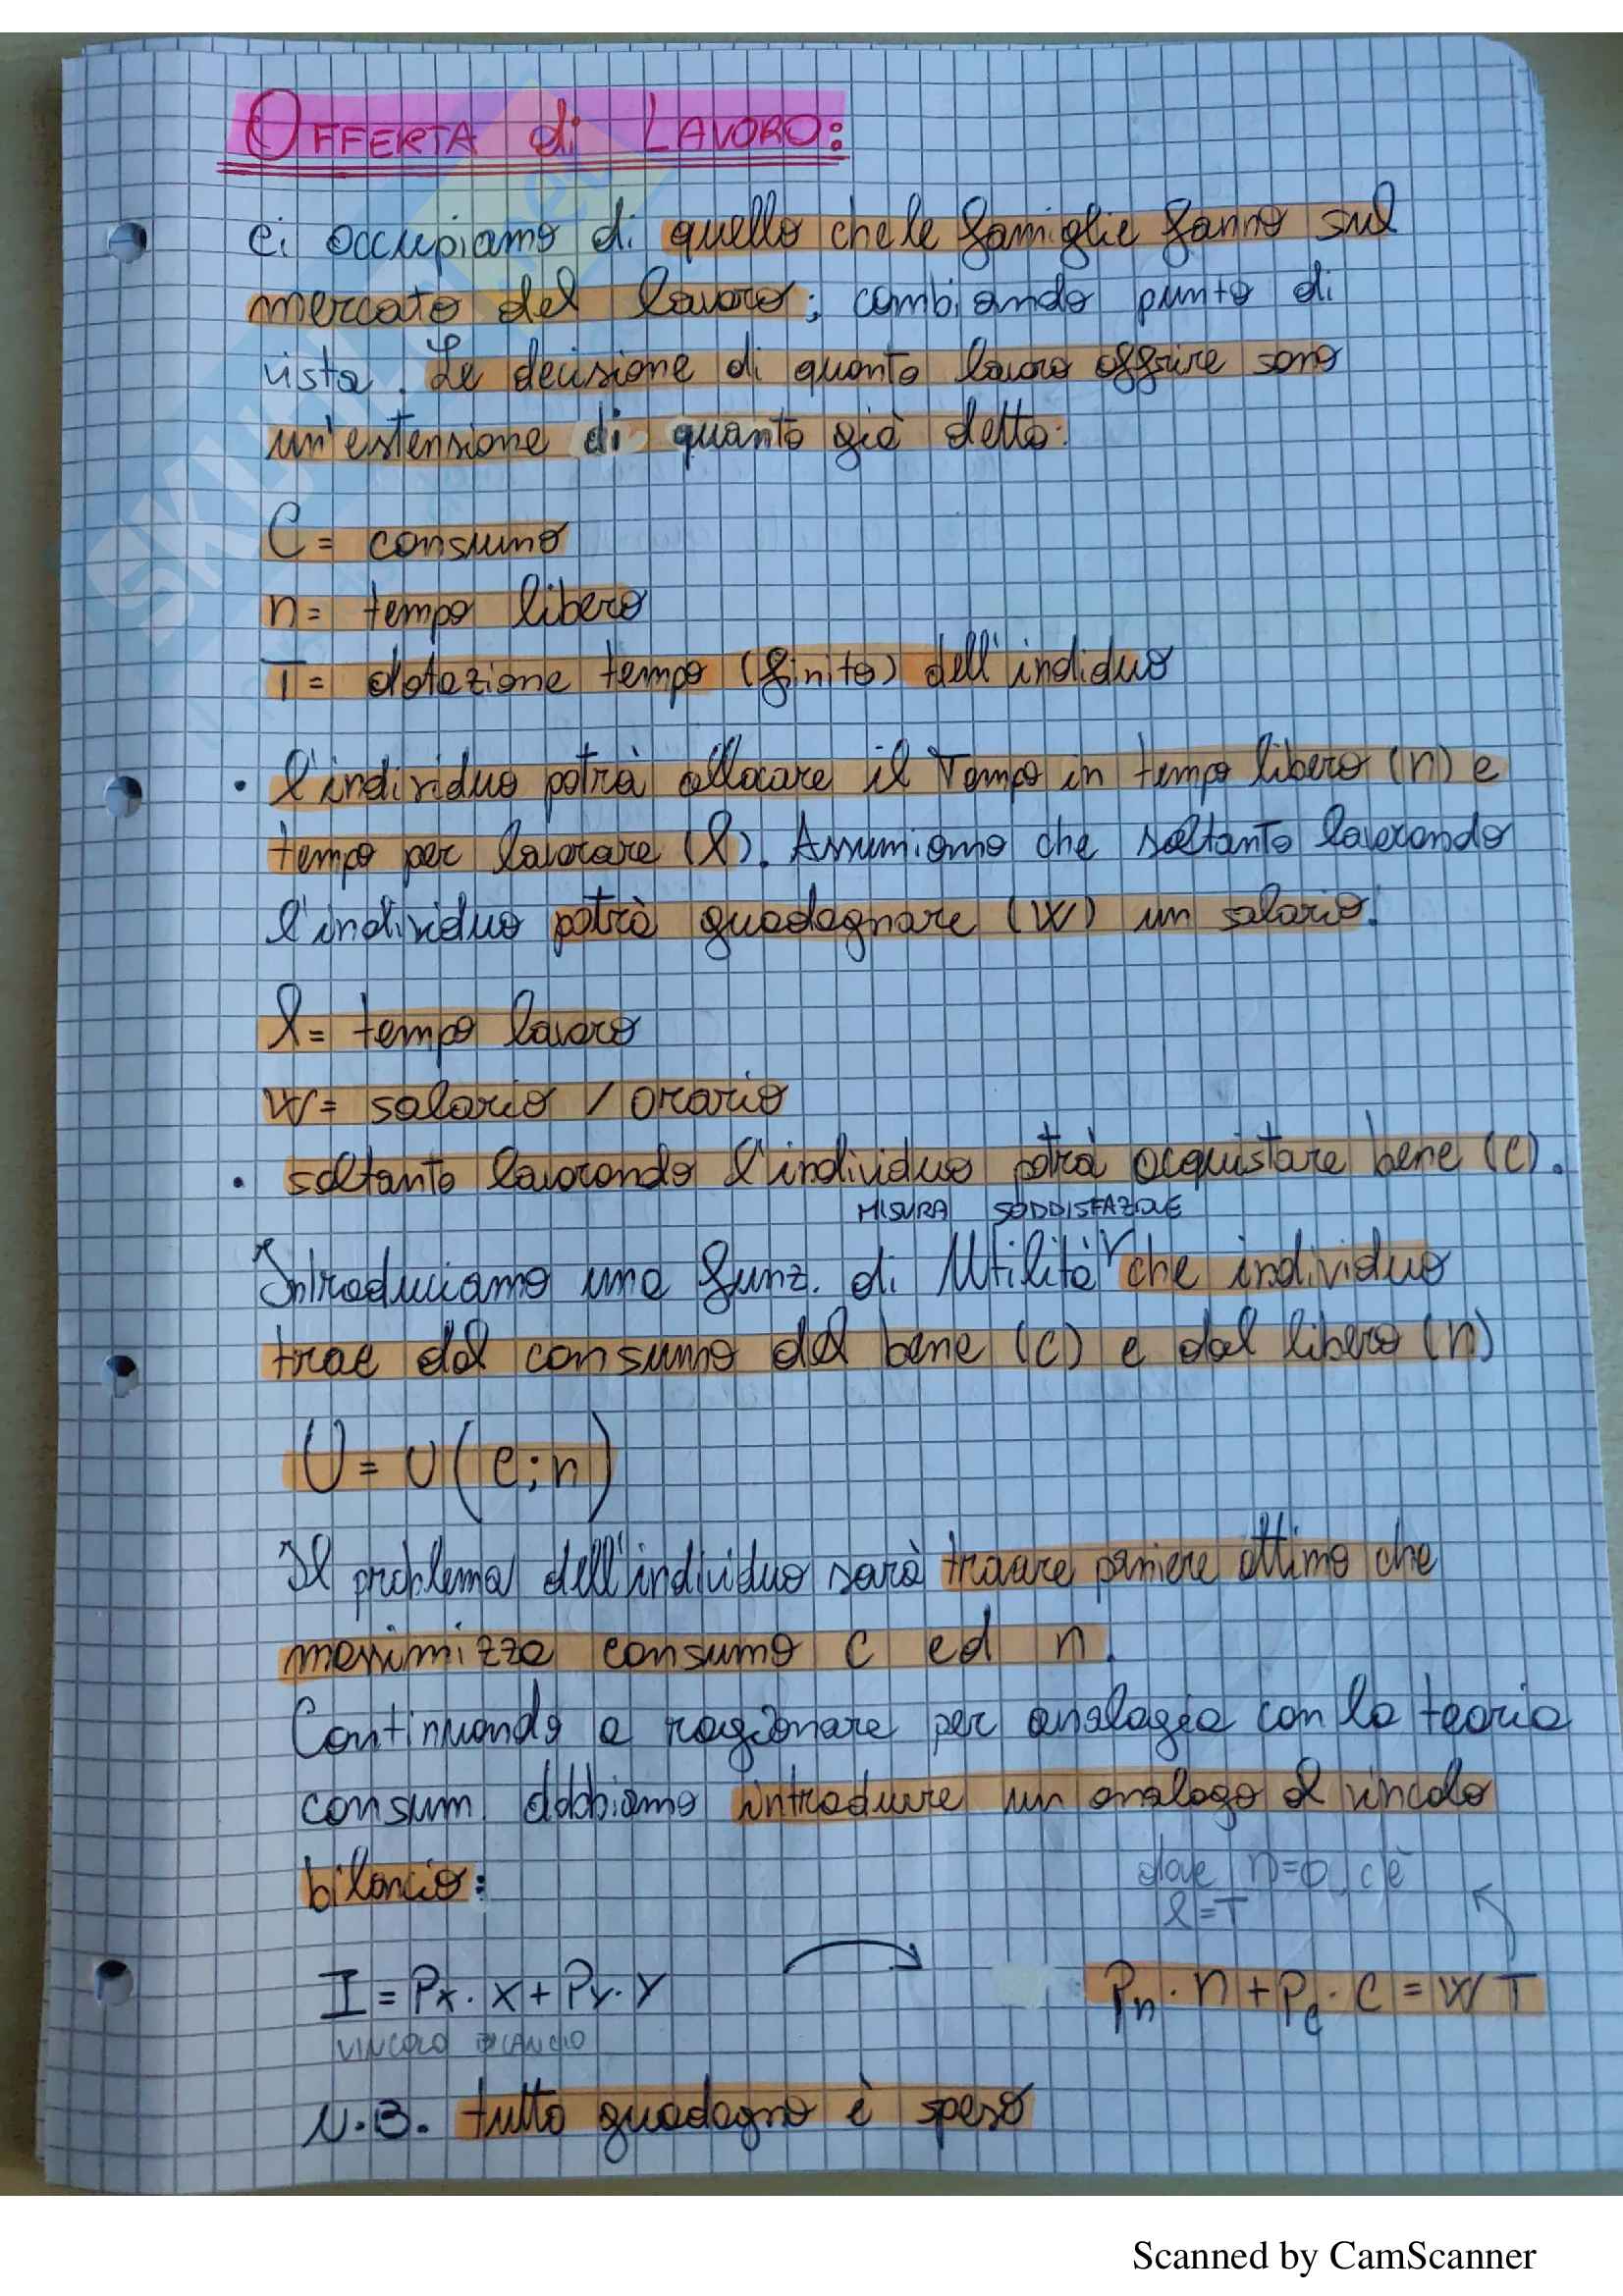 OFFERTA di LAVORO:
ci occupiamo di quello che le famiglie fanno sul
mercato del lavoro; cambiando punto di
vista. Le decisione di quanto lavoro offrire sono
un'estensione di quanto già detto:
C= consumo
n= tempo libero
T= dotazione tempo (finito) dell'individuo
• l'individuo potrà allocare il Tempo in tempo libero (n) e
tempo per lavorare (l). Assumiamo che soltanto lavorando
l'individuo potrà guadagnare (w) un salario.
l= tempo lavoro
w= salario / orario
• soltanto lavorando l'individuo potrà acquistare bene (c).
MISURA SODDISFAZIONE
Introduciamo una funz. di Utilità che individuo
trae dal consumo del bene (c) e dal libero (n)
U = U(c;n)
Il problema dell'individuo sarà trovare paniere ottimo che
massimizza consumo c ed n.
Continuando a ragionare per analogia con la teoria
consum. dobbiamo introdurre un analogo al vincolo
bilancio:
dove n=0, c'è
l=T
I = Px · X + Py · Y
Pn · n + Pc · C = W T
VINCOLO BILANCIO
N.B. tutto guadagno è speso
Scanned by CamScanner